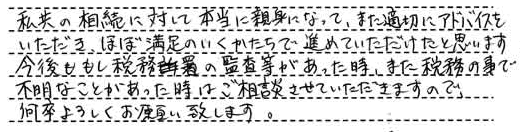 私共の相続に対して本当に親身になって、また適切にアドバイスを
いただき、ほぼ満足のいくかたちで進めていただけたと思います
今後ももし税務署の監査等があった時、また税務の事で
不明なことがあった時はご相談させていただきますので、
何卒よろしくお願い致します。